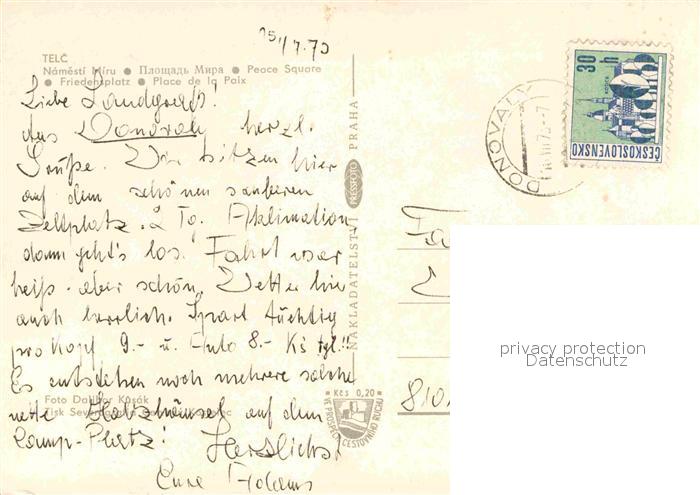 15/7.75
TELČ
Náměstí Míru ● Площадь Мира ● Peace Square
● Friedensplatz ● Place de la Paix
Liebe Landgrafs!
Aus Donovaly herzl.
Grüße. Wir sitzen hier
auf dem schönen sauberen
Zeltplatz. 2 Tg. Aklimation
dann geht's los. Fahrt war
heiß aber schön. Wetter hier
auch herrlich. Spart tüchtig
pro Kopf 9.- u. Auto 8.- Kčs tgl.!!
Es entstehen noch mehrere solche
nette Holzhäusel auf dem
Camp-Platz! Herzlichst
Eure Adams
Foto Dalibor Kusák
Tisk Severografia
NAKLADATELSTVÍ PRESSFOTO PRAHA
Kčs 0,20
VE PROSPĚCH CESTOVNÍHO RUCHU
DONOVALY
30 h
ČESKOSLOVENSKO
Fa
810
privacy protection
Datenschutz